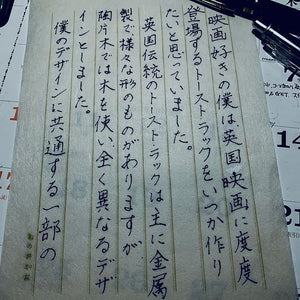 映画好きの僕は英国映画に度度
登場するトーストラックをいつか作り
たいと思っていました。
英国伝統のトーストラックは主に金属
製で様々な形のものがありますが
陶片木では木を使い、全く異なるデザ
インとしました。
僕のデザインに共通する一部の